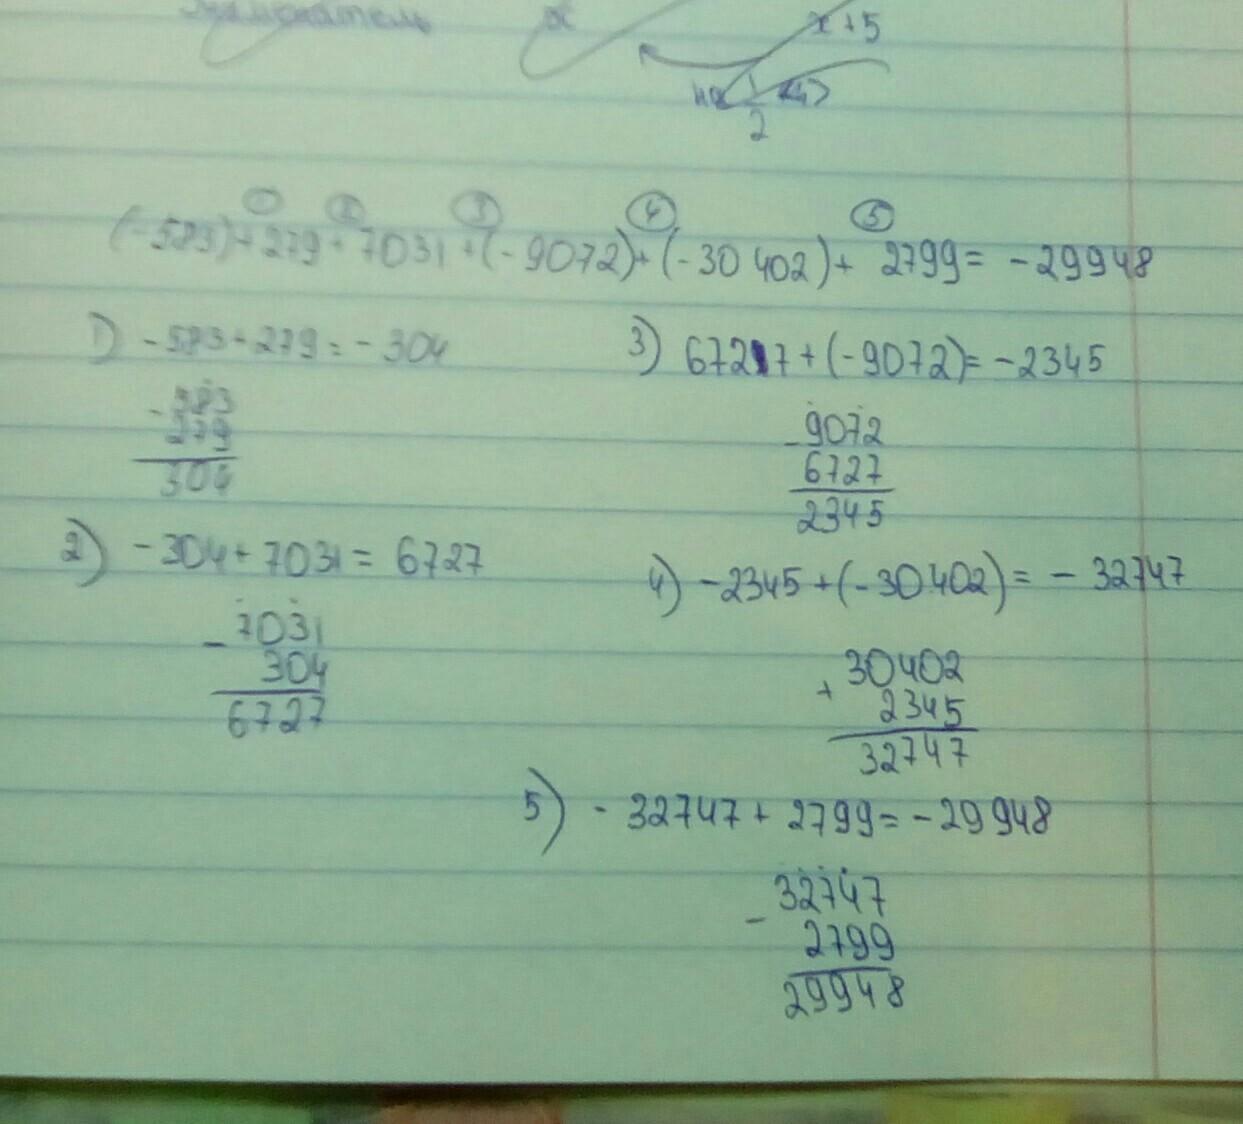 Знаменатель x x+5
на 1/2
① ② ③ ④ ⑤
(-583)+279+7031+(-9072)+(-30402)+ 2799= -29948
1) -583+279=-304
-583
279
304
2) -304+7031= 6727
-7031
304
6727
3) 6727+(-9072)=-2345
-9072
6727
2345
4) -2345+(-30402)= - 32747
+30402
2345
32747
5) - 32747+ 2799=-29948
-32747
2799
29948